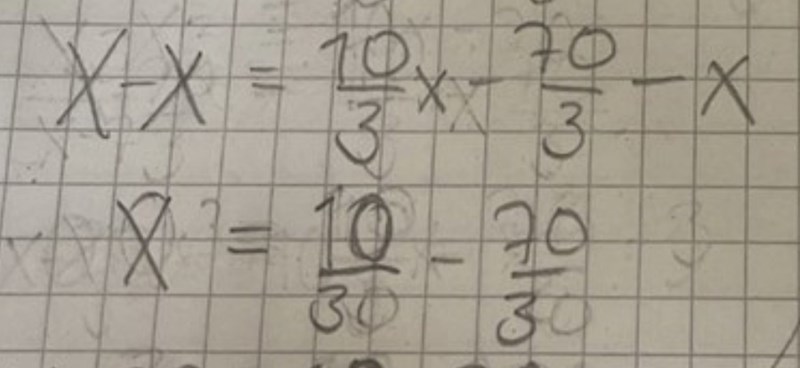 X-X = 10/3 x - 70/3 - X
X = 10/30 - 70/30